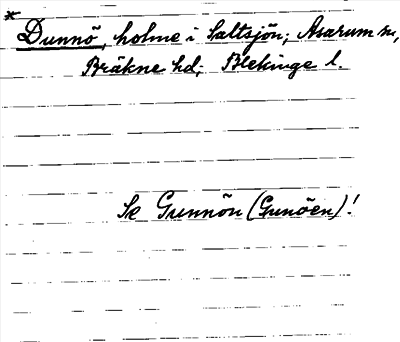 *
Dunnö, holme i Saltsjön; Asarum sn,
Bräkne hd; Blekinge l.
Se Gunnön (Gunöen)!